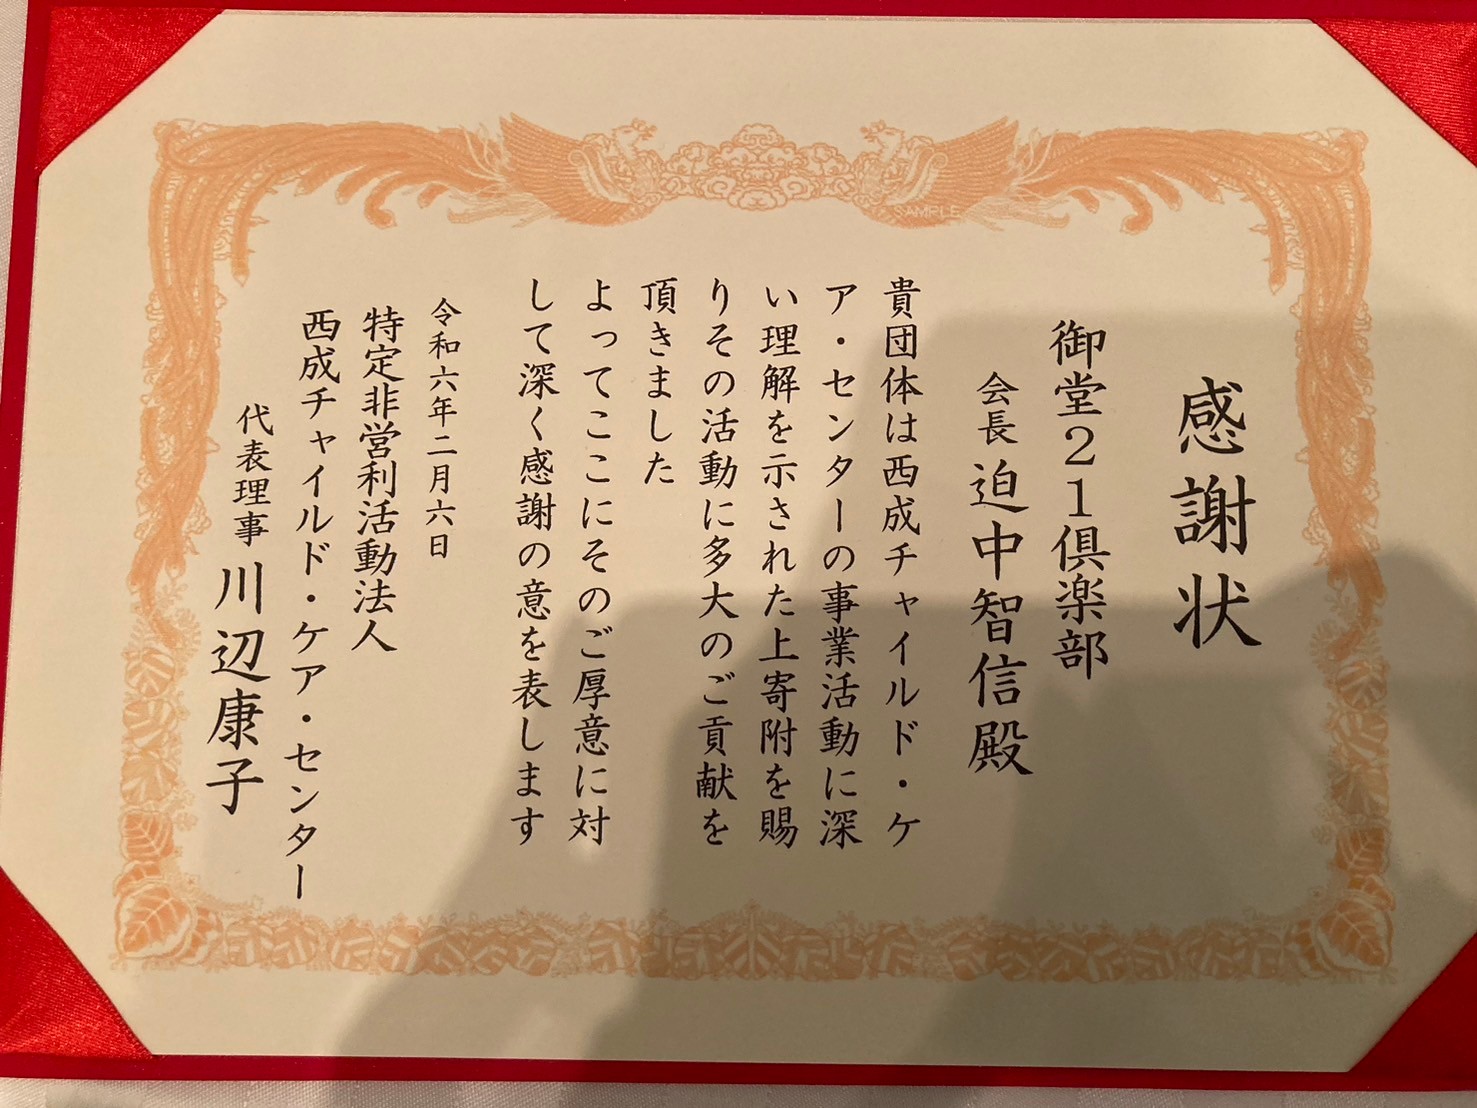 感謝状
御堂21倶楽部
会長 迫中智信殿
貴団体は西成チャイルド・ケ
ア・センターの事業活動に深
い理解を示された上寄附を賜
りその活動に多大のご貢献を
頂きました
よってここにそのご厚意に対
して深く感謝の意を表します
令和六年二月六日
特定非営利活動法人
西成チャイルド・ケア・センター
代表理事 川辺康子
SAMPLE